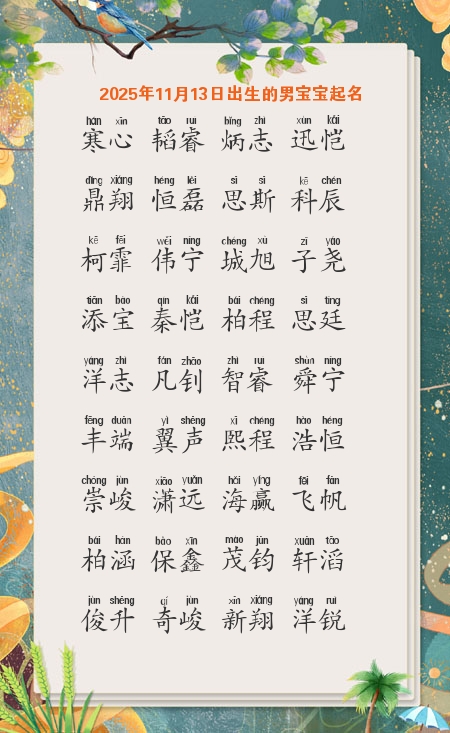 2025年11月13日出生的男宝宝起名
hán xīn tāo ruì bǐng zhì xùn kǎi
寒心 韬睿 炳志 迅恺
dǐng xiáng héng lěi sī sī kē chén
鼎翔 恒磊 思斯 科辰
kē fēi wěi níng chéng xù zǐ yáo
柯霏 伟宁 城旭 子尧
tiān bǎo qín kǎi bái chéng sī tíng
添宝 秦恺 柏程 思廷
yáng zhì fán zhāo zhì ruì shùn níng
洋志 凡钊 智睿 舜宁
fēng duān yì shēng xī chéng hào héng
丰端 翼声 熙程 浩恒
chóng jùn xiāo yuǎn hǎi yíng fēi fān
崇峻 潇远 海赢 飞帆
bái hán bǎo xīn mào jūn xuān tāo
柏涵 保鑫 茂钧 轩滔
jùn shēng qí jùn xīn xiáng yáng ruì
俊升 奇峻 新翔 洋锐